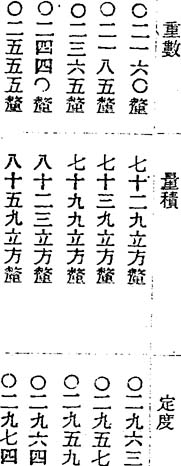 重數
〇二一六〇釐
〇二一八五釐
〇二三六五釐
〇二四四〇釐
〇二五五五釐
量積
七十二九立方釐
七十三九立方釐
七十九九立方釐
八十二三立方釐
八十五九立方釐
定度
〇二九六三
〇二九五七
〇二九五九
〇二九六四
〇二九七四